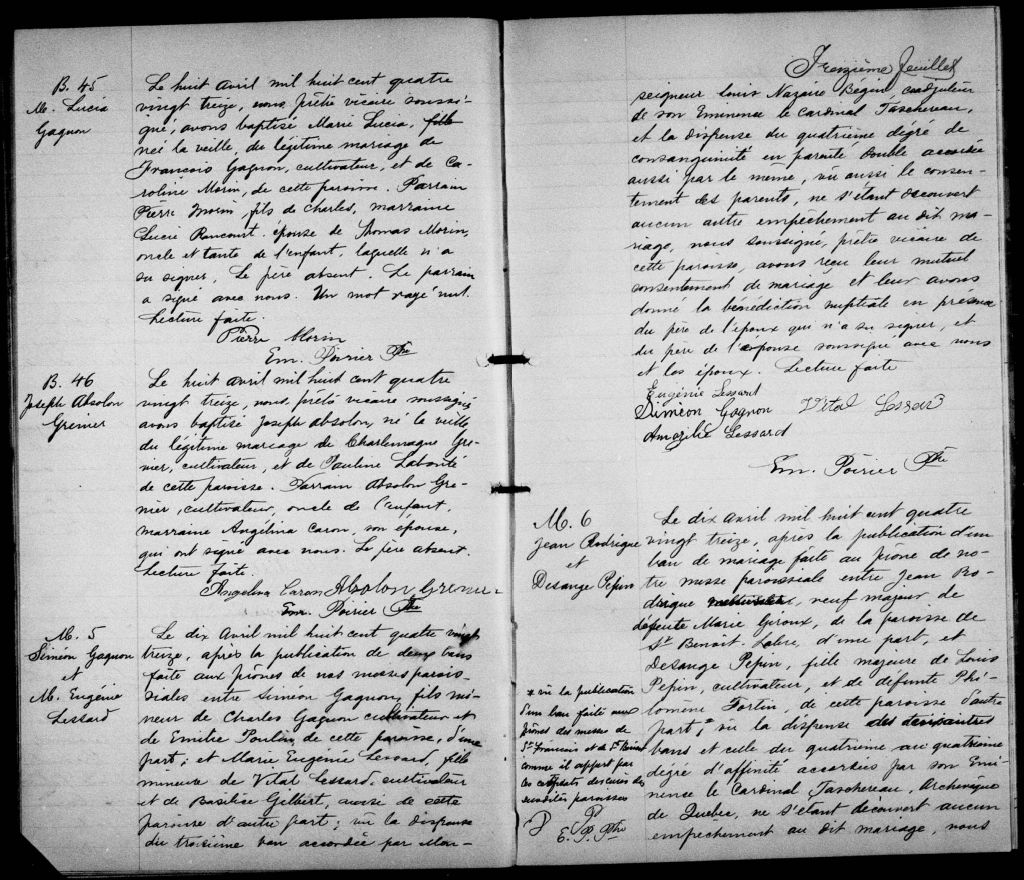 B. 45
M. Lucia
Gagnon
Le huit avril mil huit cent quatre
vingt treize, nous, prêtre vicaire soussi-
gné, avons baptisé Marie Lucia, fille
née la veille, du légitime mariage de
Francois Gagnon, cultivateur, et de Ca-
roline Morin, de cette paroisse. Parrain
Pierre Morin, fils de Charles, marraine
Lucie Rancourt, épouse de Thomas Morin,
oncle et tante de l'enfant, laquelle n'a
su signer. Le père absent. Le parrain
a signé avec nous. Un mot rayé nul.
Lecture faite.
Pierre Morin
Em. Poirier Ptre
B. 46
Joseph Absolon
Grenier
Le huit avril mil huit cent quatre
vingt treize, nous, prêtre vicaire soussigné
avons baptisé Joseph Absolon, né la veille,
du légitime mariage de Charlemagne Gre-
nier, cultivateur, et de Pauline Labonté
de cette paroisse. Parrain Absolon Gre-
nier, cultivateur, oncle de l'enfant,
marraine Angélina Caron, son épouse,
qui ont signé avec nous. Le père absent.
Lecture faite.
Angelina Caron Absolon Grenier
Em. Poirier Ptre
M. 5
Siméon Gagnon
et
M. Eugénie
Lessard
Le dix avril mil huit cent quatre vingt
treize, après la publication de deux bans
faite aux prônes de nos messes parois-
siales entre Siméon Gagnon, fils mi-
neur de Charles Gagnon cultivateur et
de Emilie Poulin, de cette paroisse, d'une
part; et Marie Eugénie Lessard, fille
mineure de Vital Lessard, cultivateur
et de Basilice Gilbert, aussi de cette
paroisse d'autre part; vu la dispense
du troisième ban accordée par Mon-
Treizième Feuillet
seigneur Louis Nazaire Bégin, coadjuteur
de son Eminence le Cardinal Taschereau,
et la dispense du quatrième dégré de
consanguinité en parenté double accordée
aussi par le même, vu aussi le consen-
tement des parents, ne s'étant découvert
aucun autre empêchement au dit ma-
riage, nous soussigné, prêtre vicaire de
cette paroisse, avons reçu leur mutuel
consentement de mariage et leur avons
donné la bénédiction nuptiale en présence
du père de l'époux qui n'a su signer, et
du père de l'épouse soussigné avec nous
et les époux. Lecture faite
Eugénie Lessard
Siméon Gagnon Vital Lessard
Amazilie Lessard
Em. Poirier Ptre
M. 6
Jean Rodrigue
et
Desange Pepin
Le dix avril mil huit cent quatre
vingt treize, après la publication d'un
ban de mariage faite au prône de no-
tre messe paroissiale entre Jean Ro-
drigue veuf majeur de
défunte Marie Giroux, de la paroisse de
St Benoit Labre, d'une part, et
Desange Pepin, fille majeure de Louis
Pepin, cultivateur, et de défunte Phi-
lomène Fortin, de cette paroisse d'autre
part,* vu la dispense des deux autres
bans et celle du quatrième au quatrième
dégré d'affinité accordées par son Emi-
nence le Cardinal Taschereau, Archevêque
de Quebec, ne s'étant découvert aucun
empêchement au dit mariage, nous
* vu la publication
d'un ban faite aux
prônes des messes de
St François et de St Benoit
comme il appert par
les certificats des curés des
susdites paroisses
P
E. P. Ptre